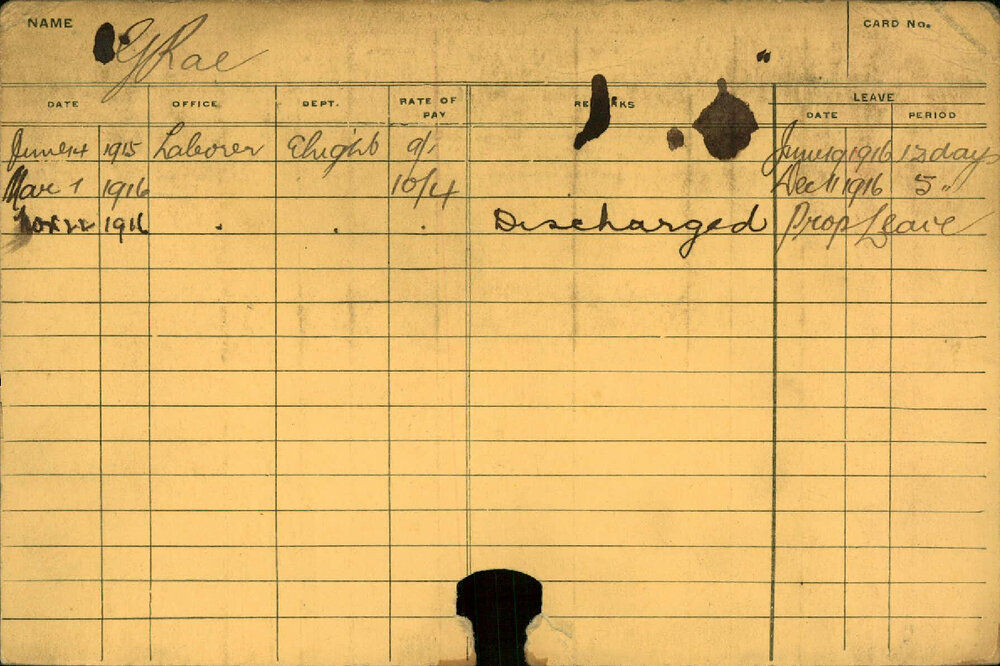 NAME
G Rae
CARD No.
DATE OFFICE DEPT. RATE OF PAY REMARKS LEAVE
DATE PERIOD
June 14 1915 Laborer Elught 9/- June 19 1916 12 days
Mar 1 1916 10/4 Dec 11 1916 5 "
Nov 22 1916 . . . Discharged Prop Leave